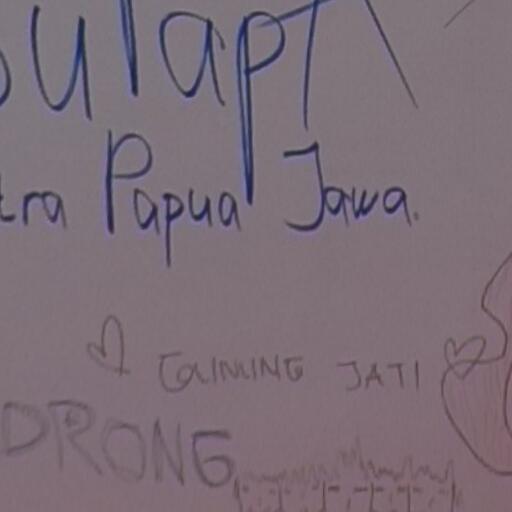 ulap
tra Papua Jawa.
GUNUNG JATI
DRONG